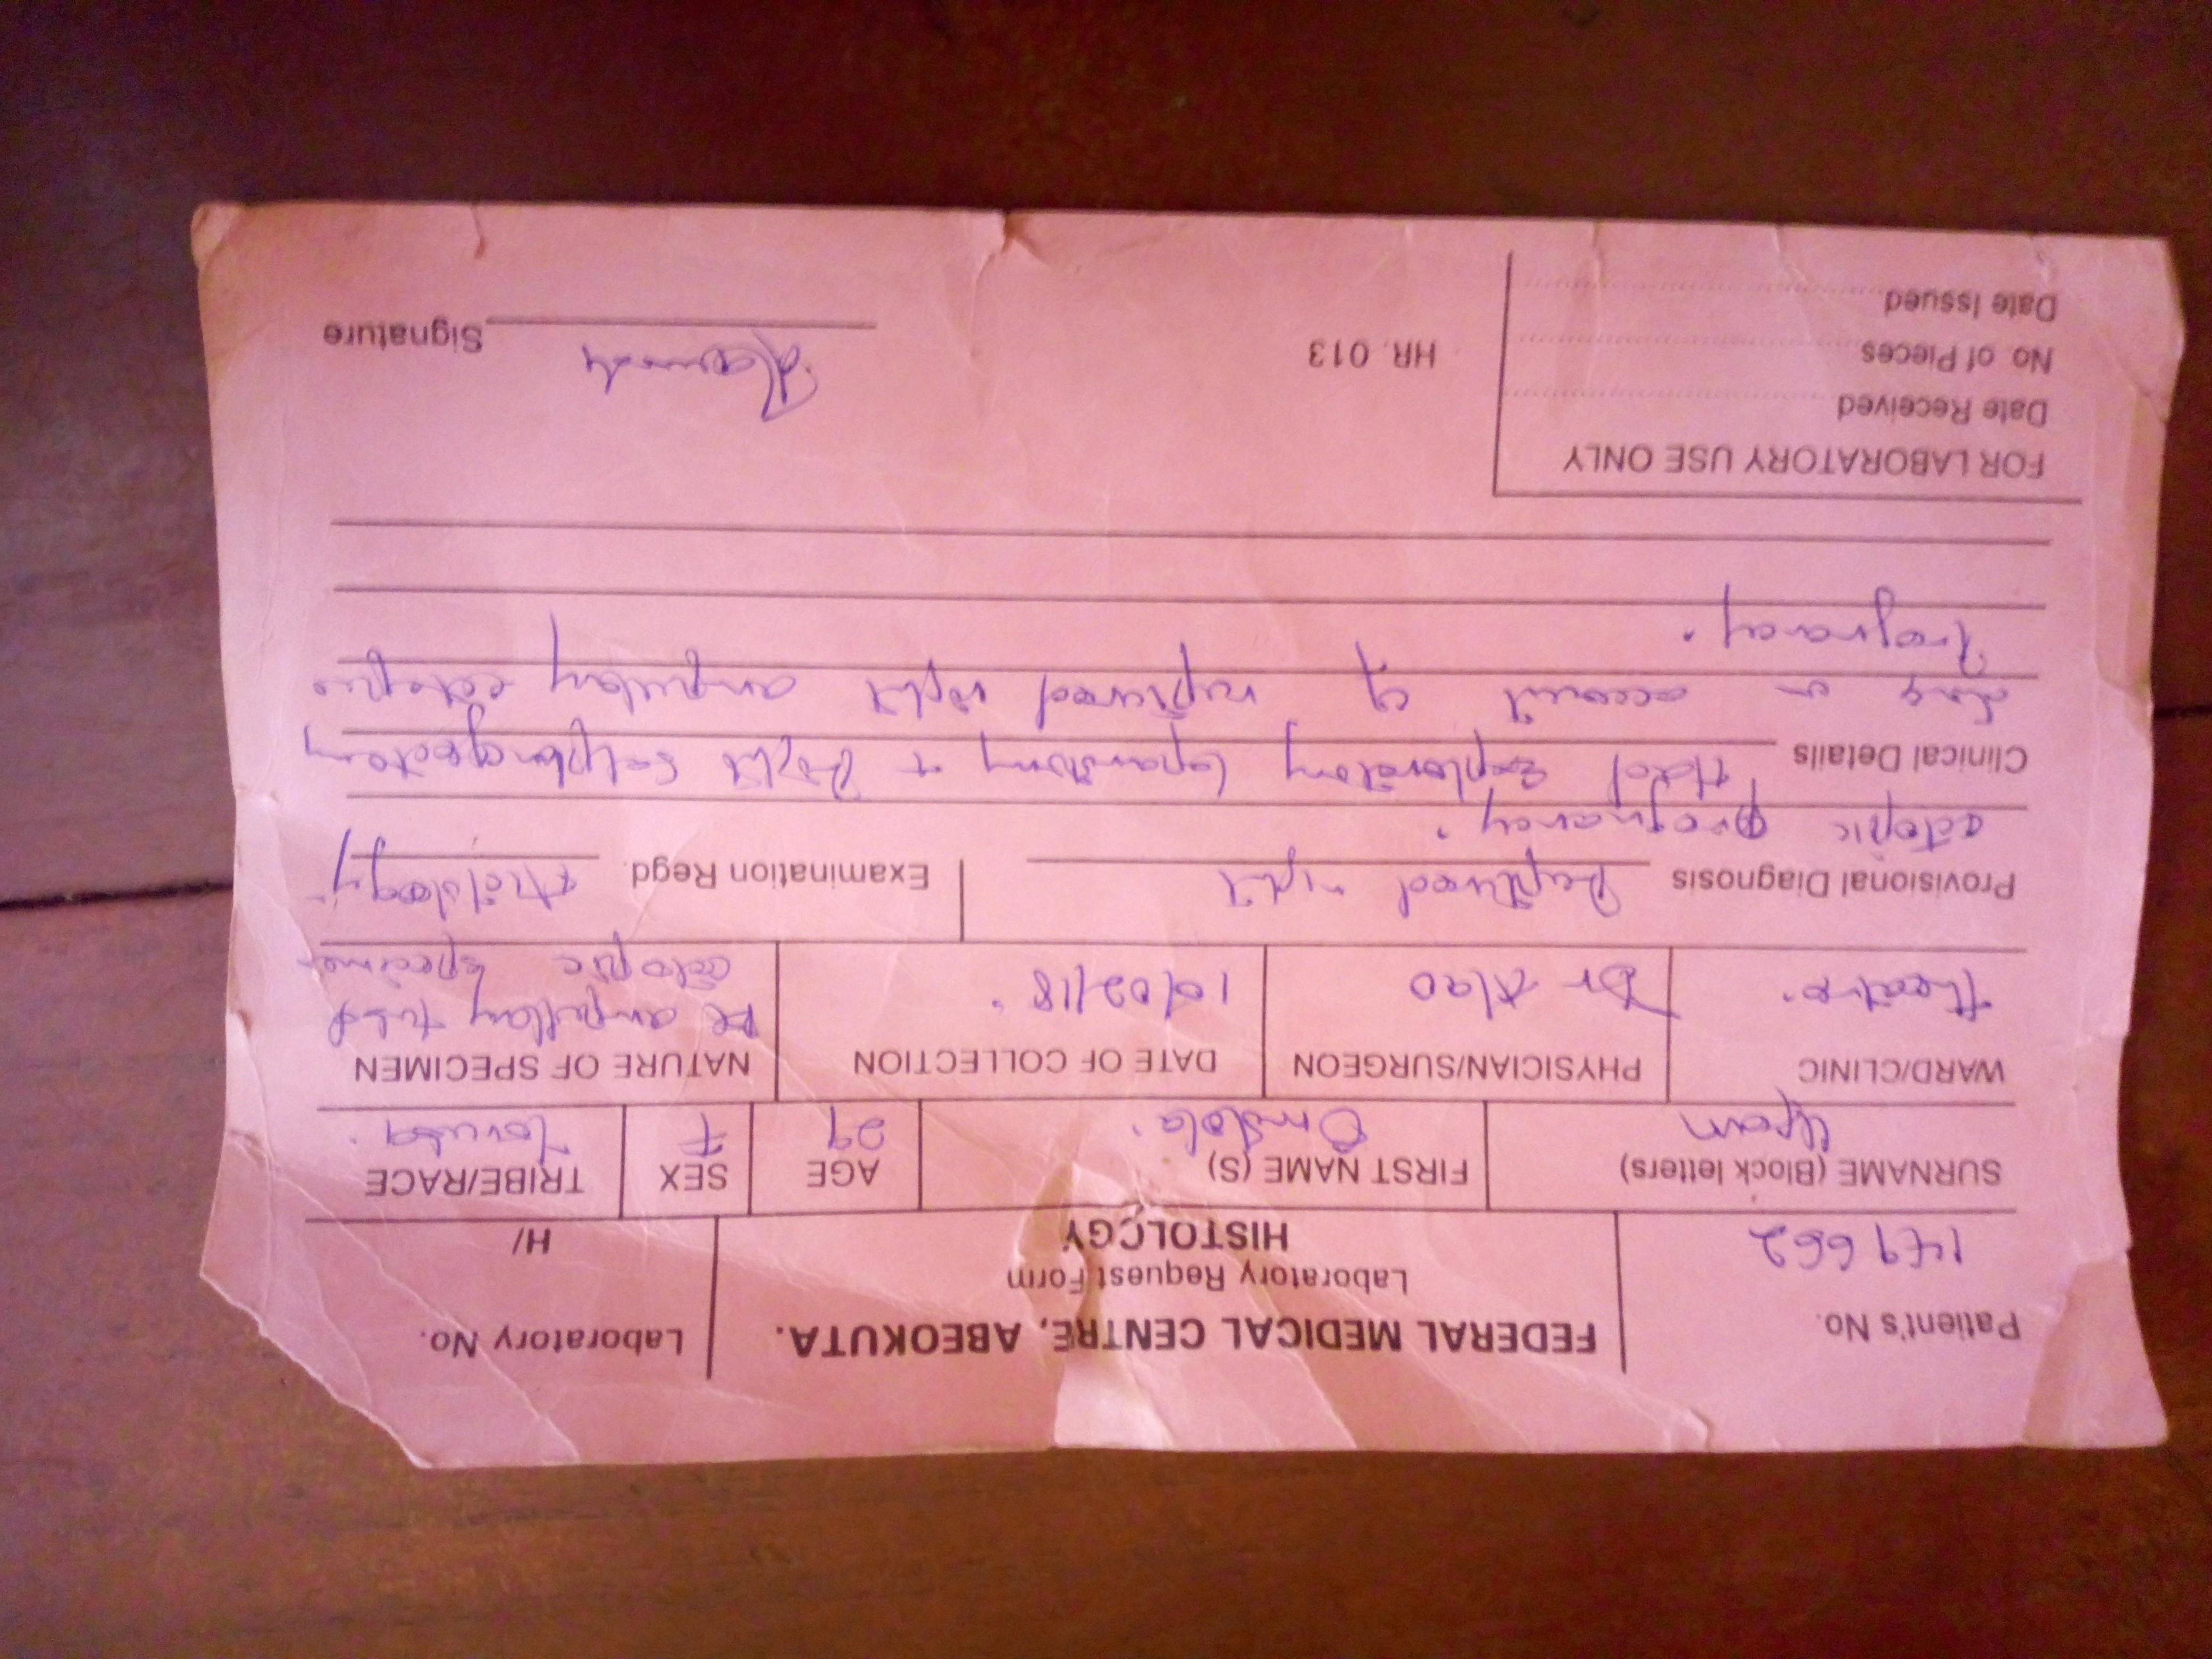 Patient's No.
149662
FEDERAL MEDICAL CENTRE, ABEOKUTA.
Laboratory Request Form
HISTOLOGY
Laboratory No.
H/
SURNAME (Block letters)
FIRST NAME (S)
Omolola.
AGE
29
SEX
F
TRIBE/RACE
Yoruba.
WARD/CLINIC
Theatre.
PHYSICIAN/SURGEON
Dr Alao
DATE OF COLLECTION
10/02/18.
NATURE OF SPECIMEN
ampullary tubal
ectopic specimen
Provisional Diagnosis Ruptured right
ectopic pregnancy.
Examination Regd. Histology
Clinical Details Had Exploratory laparotomy + Right Salpingectomy
done on account of ruptured right ampullary ectopic
pregnancy.
FOR LABORATORY USE ONLY
Date Received
No. of Pieces
Date Issued
HR. 013
Signature